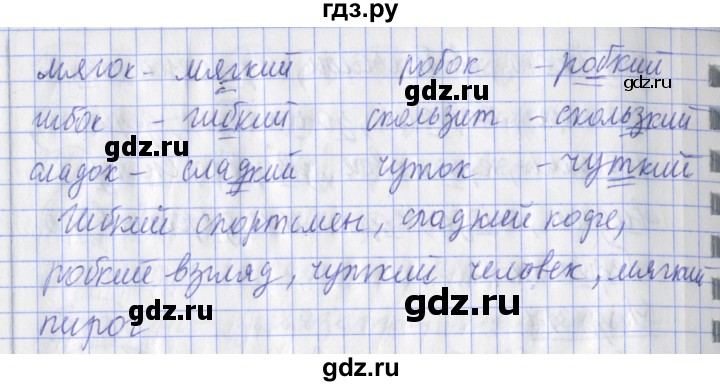 гдз.ру
мягок - мягкий робок - робкий
gdz.ru
гибок - гибкий скользит - скользкий
сладок - сладкий чуток - чуткий
Гибкий спортсмен, сладкий кофе,
робкий взгляд, чуткий человек, мягкий
gdz.ru gdz.ru
пирог
gdz.ru